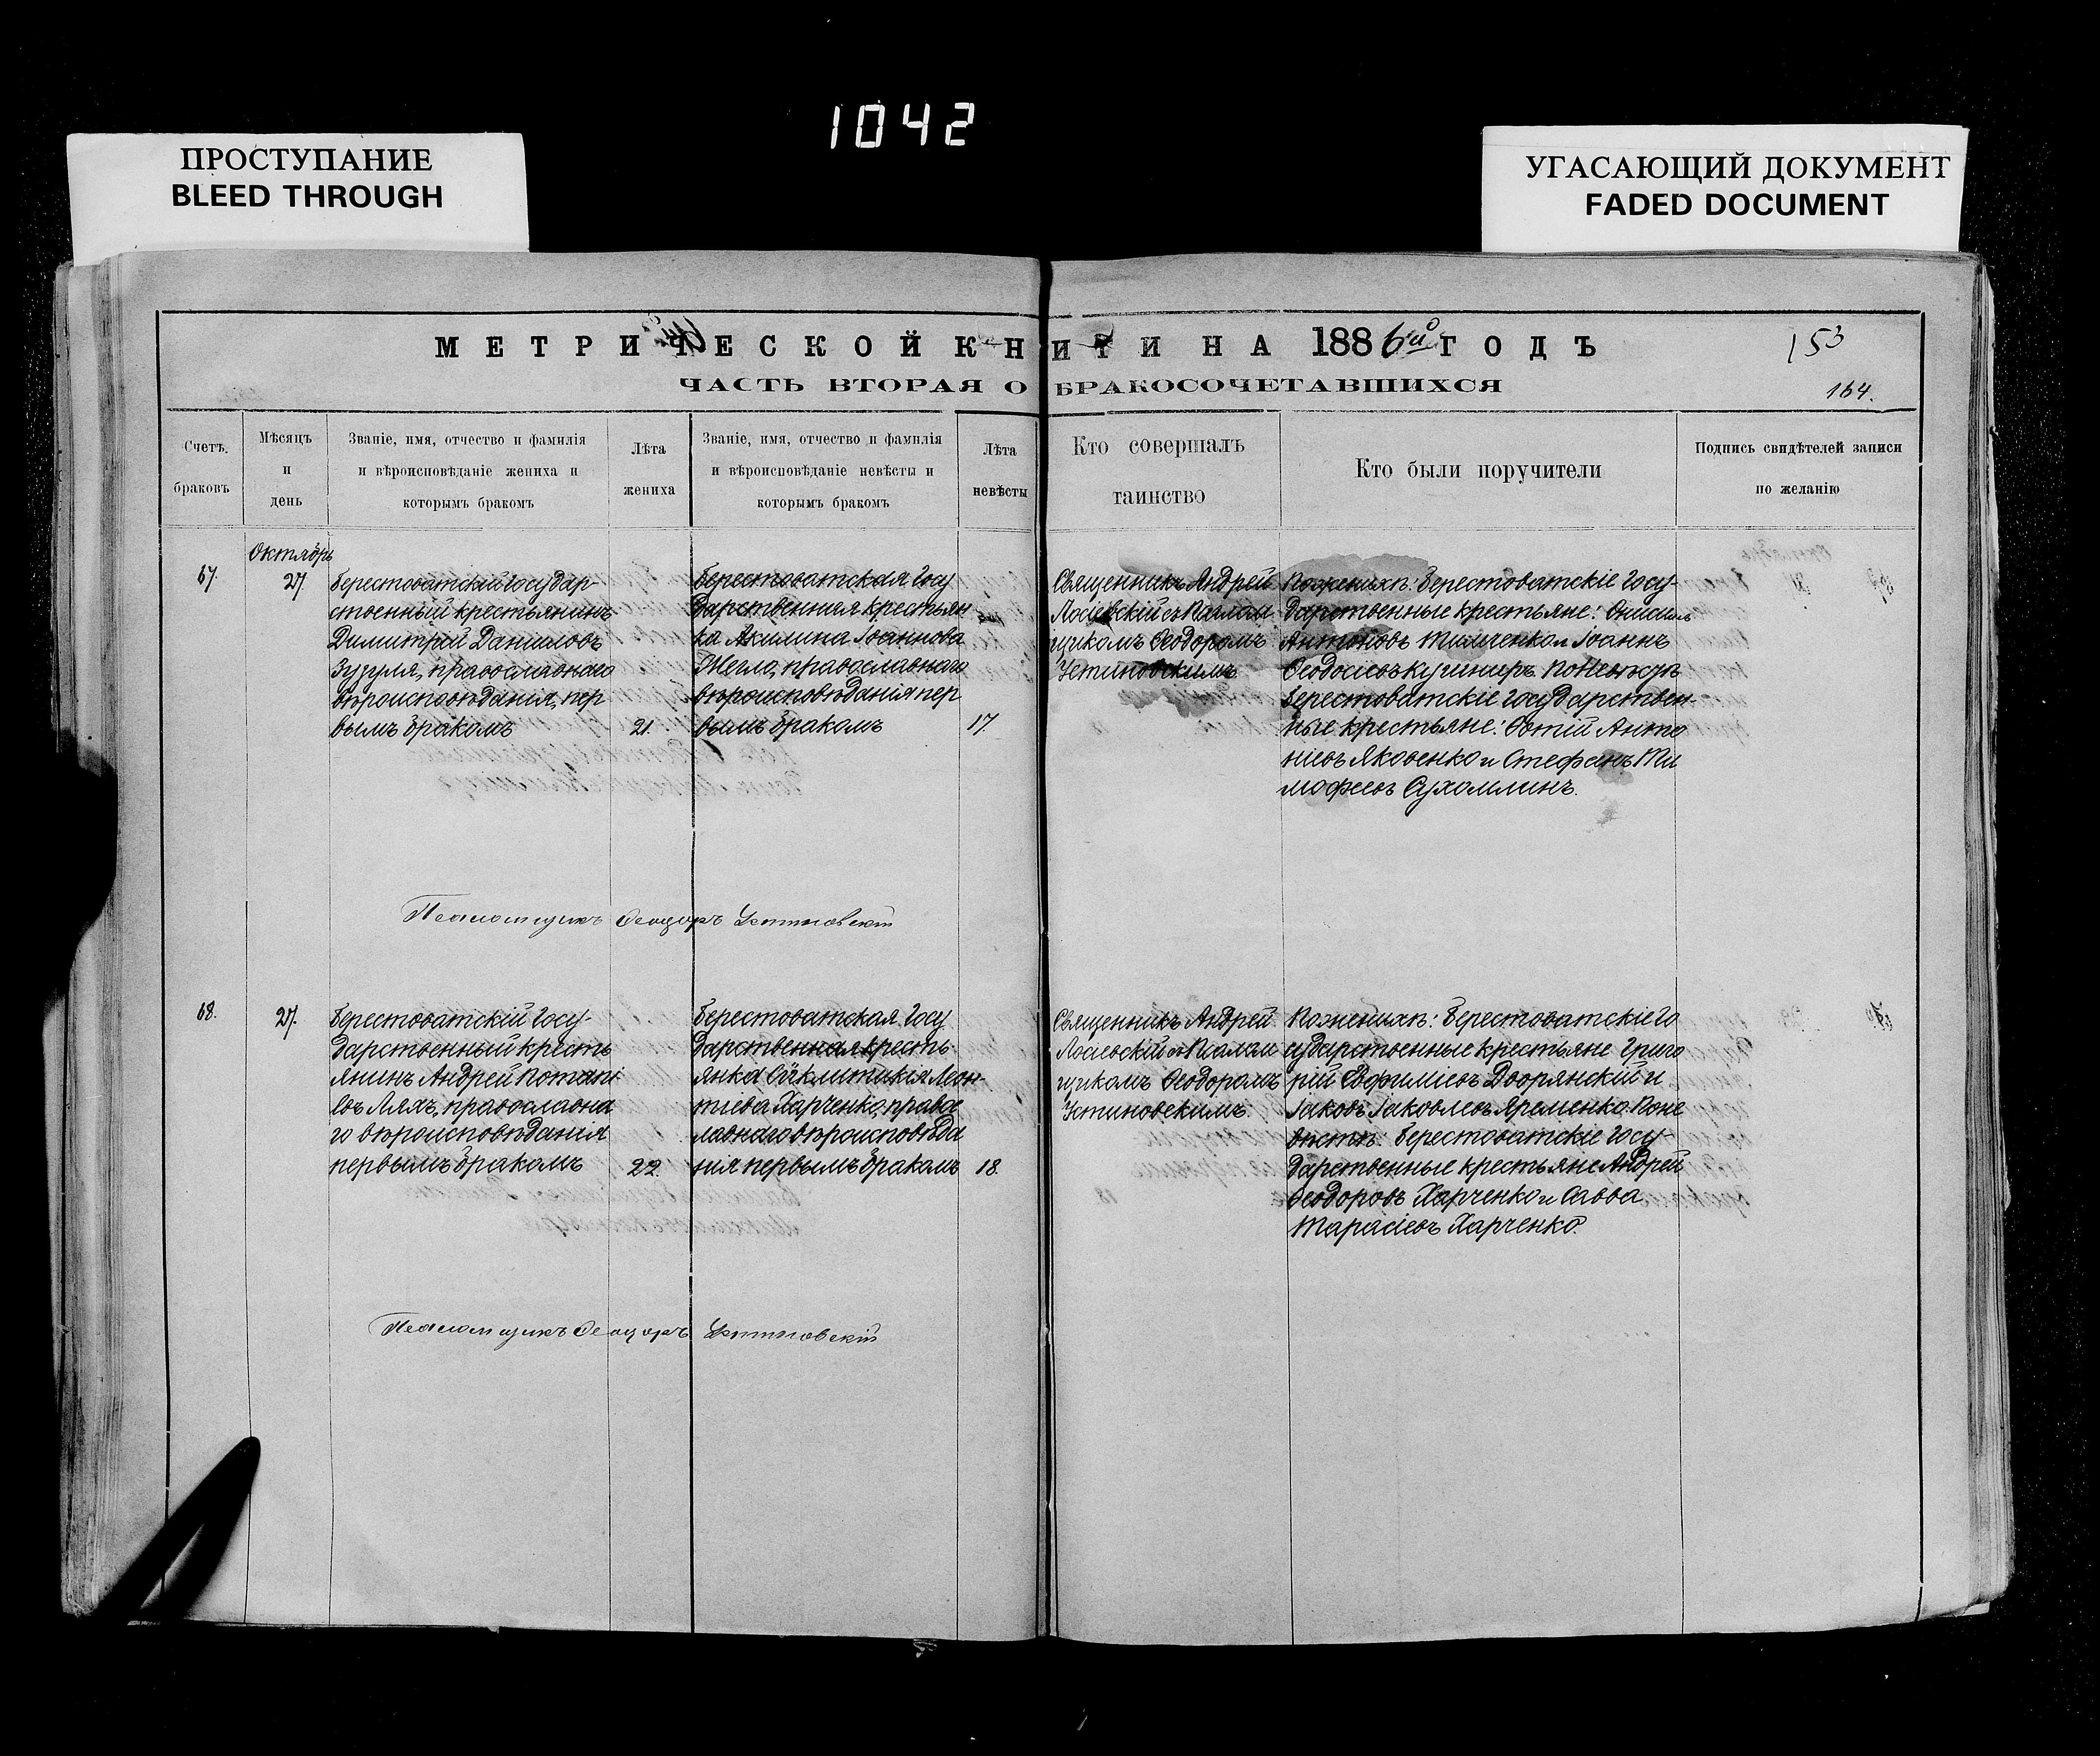 1042
ПРОСТУПАНИЕ
BLEED THROUGH
УГАСАЮЩИЙ ДОКУМЕНТ
FADED DOCUMENT
МЕТРИЧЕСКОЙ КНИГИ НА 1886й ГОДЪ
153
ЧАСТЬ ВТОРАЯ О БРАКОСОЧЕТАВШИХСЯ
164.
Счетъ
браковъ
Мѣсяцъ
и
день
Званіе, имя, отчество и фамилія
и вѣроисповѣданіе жениха и
которымъ бракомъ
Лѣта
жениха
Званіе, имя, отчество и фамилія
и вѣроисповѣданіе невѣсты и
которымъ бракомъ
Лѣта
невѣсты
Кто совершалъ
таинство
Кто были поручители
Подпись свидѣтелей записи
по желанію
67.
Октябрь
27.
Берестоватскій Государ-
ственный крестьянинъ
Димитрій Даніиловъ
Зузуля, православнаго
вѣроисповѣданія, пер
вымъ бракомъ
21.
Берестоватская Госу
дарственная крестьян
ка Акилина Іоаннова
православнаго
вѣроисповѣданія пер
вымъ бракомъ
17.
Священникъ Андрей
Лосіевскій съ Псалом
щикомъ Ѳеодоромъ
Устиновскимъ
По женихѣ: Берестоватскіе Госу-
дарственные крестьяне:
Антоновъ Тимченко и Іоаннъ
Ѳеодосіевъ Кушниръ. По невѣстѣ
Берестоватскіе Государствен-
ные крестьяне: Фотій Анто
ніевъ Яковенко и Стефанъ Ти
моѳеевъ Сухомлинъ.
Псаломщикъ Ѳеодоръ Устиновскій
68.
27.
Берестоватскій Госу-
дарственный кресть
янинъ Андрей Потапі
евъ Ляхъ, православна
го вѣроисповѣданія
первымъ бракомъ
22.
Берестоватская Госу
дарственная кресть-
янка Сѵнклитикія Леон-
тіева Харченко, правос
лавнаго вѣроисповѣда
нія первымъ бракомъ
18.
Священникъ Андрей
Лосіевскій съ Псалом
щикомъ Ѳеодоромъ
Устиновскимъ.
По женихѣ: Берестоватскіе Го
сударственные крестьяне Григо
рій Евфиміевъ Дворянскій и
Іаковъ Іаковлевъ Яременко. По не
вѣстѣ: Берестоватскіе Госу-
дарственные крестьяне Андрей
Ѳеодоровъ Харченко и Савва
Тарасіевъ Харченко.
Псаломщикъ Ѳеодоръ Устиновскій